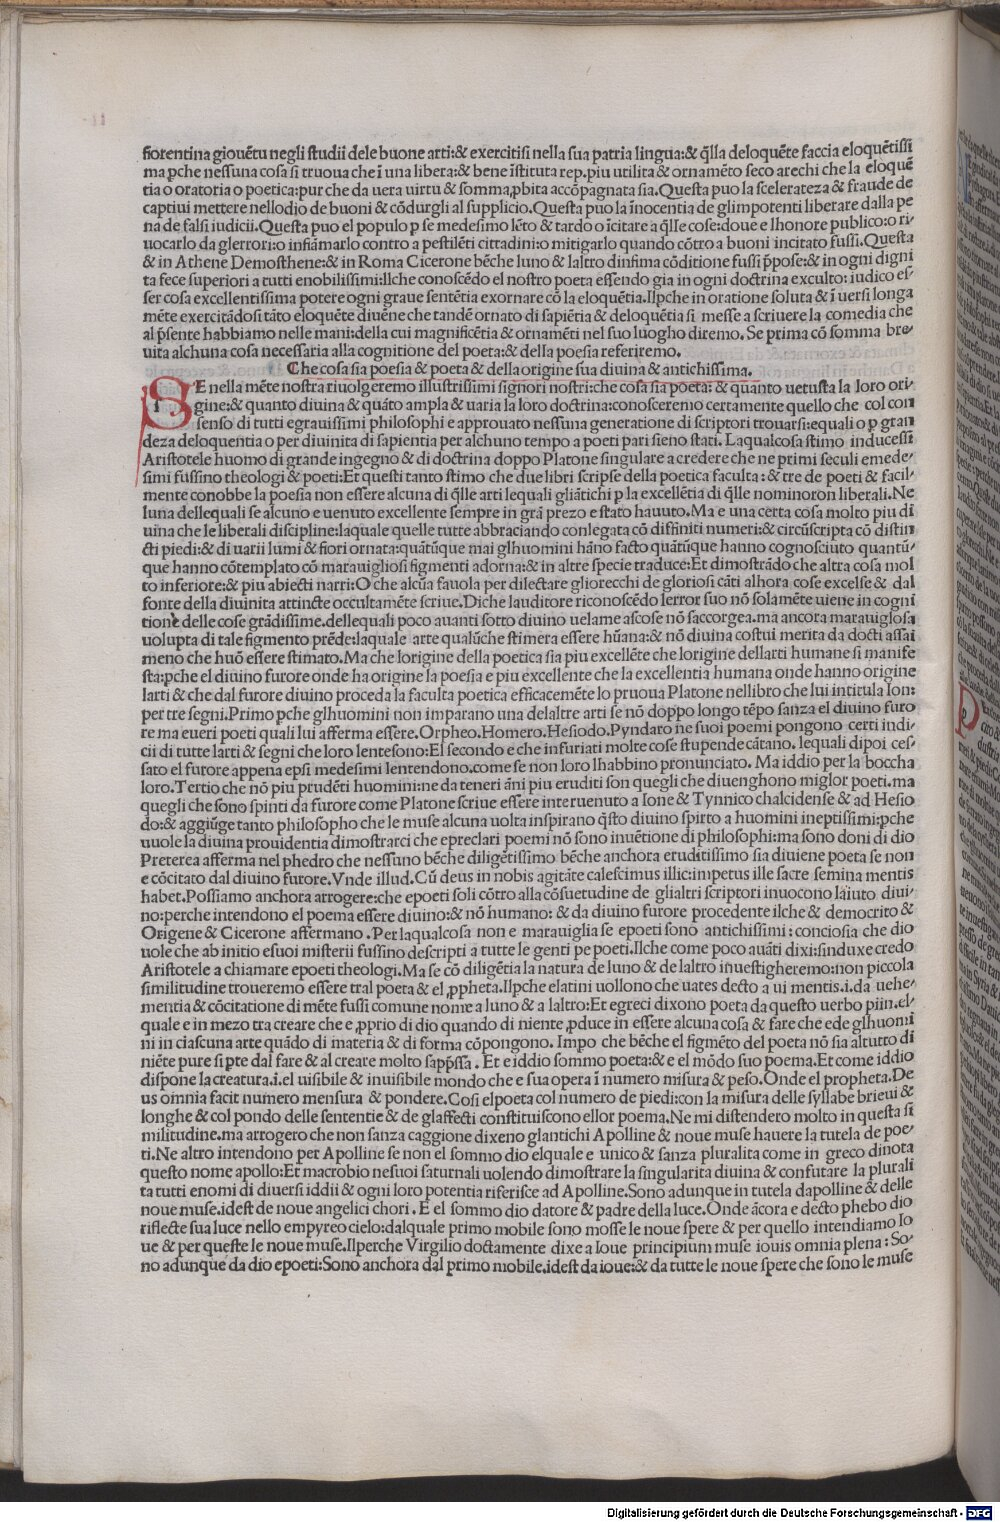 fiorentina giouētu negli studii dele buone arti:& exercitisi nella sua patria lingua:& q̄lla deloquēte faccia eloquētissi
ma pche nessuna cosa si truoua che ī una libera:& bene īstituta rep.piu utilita & ornamēto seco arechi che la eloquē
tia o oratoria o poetica:pur che da uera uirtu & somma,pbita accōpagnata sia.Questa puo la scelerateza & fraude de
captiui mettere nellodio de buoni & cōdurgli al supplicio.Questa puo la inocentia de glimpotenti liberare dalla pe
na de falsi iudicii.Questa puo el populo p se medesimo lēto & tardo o īcitare a q̄lle cose:doue e lhonore publico:o ri/
uocarlo da glerrori:o infiāmarlo contro a pestilēti cittadini:o mitigarlo quando cōtro a buoni incitato fussi.Questa
& in Athene Demosthene:& in Roma Cicerone bēche luno & laltro dinfima cōditione fussi ꝓpose:& in ogni digni
ta fece superiori a tutti enobilissimi:Ilche conoscēdo el nostro poeta essendo gia in ogni doctrina exculto: iudico es/
ser cosa excellentissima potere ogni graue sentētia exornare cō la eloquētia.Ilpche in oratione soluta & ī uersi longa
mēte exercitādosi tāto eloquēte diuēne che tandē ornato di sapiētia & deloquētia si messe a scriuere la comedia che
al p̄sente habbiamo nelle mani:della cui magnificētia & ornamēti nel suo luogho diremo. Se prima cō somma bre/
uita alchuna cosa necessaria alla cognitione del poeta:& della poesia referiremo.
Che cosa sia poesia & poeta & della origine sua diuina & antichissima.
SE nella mēte nostra riuolgeremo illustrissimi signori nostri:che cosa sia poeta: & quanto uetusta la loro ori/
gine:& quanto diuina & quāto ampla & uaria la loro doctrina:conosceremo certamente quello che col con
senso di tutti egrauissimi philosophi e approuato nessuna generatione di scriptori trouarsi:equali o p gran
deza deloquentia o per diuinita di sapientia per alchuno tempo a poeti pari sieno stati. Laqualcosa stimo inducessi
Aristotele huomo di grande ingegno & di doctrina doppo Platone singulare a credere che ne primi seculi emede/
simi fussino theologi & poeti:Et questi tanto stimo che due libri scripse della poetica faculta : & tre de poeti & facil/
mente conobbe la poesia non essere alcuna di q̄lle arti lequali gliātichi p la excellētia di q̄lle nominoron liberali.Ne
luna dellequali se alcuno e uenuto excellente sempre in grā prezo e stato hauuto.Ma e una certa cosa molto piu di
uina che le liberali discipline:laquale quelle tutte abbraciando conlegata cō diffiniti numeri:& circūscripta cō distin
cti piedi:& di uarii lumi & fiori ornata:quātūque mai glhuomini hāno facto quātūque hanno cognosciuto quantū/
que hanno cōtemplato cō marauigliosi figmenti adorna:& in altre specie traduce:Et dimostrādo che altra cosa mol
to inferiore:& piu abiecti narri:O che alcūa fauola per dilectare gliorecchi de gloriosi cāti alhora cose excelse & dal
fonte della diuinita attincte occultamēte scriue.Diche lauditore riconoscēdo lerror suo nō solamēte uiene in cogni
tione delle cose grādissime.dellequali poco auanti sotto diuino uelame ascose nō saccorgea.ma ancora marauiglosa
uolupta di tale figmento prēde:laquale arte qualūche stimera essere hūana:& nō diuina costui merita da docti assai
meno che huō essere stimato.Ma che lorigine della poetica sia piu excellēte che lorigine dellarti humane si manife
sta:pche el diuino furore onde ha origine la poesia e piu excellente che la excellentia humana onde hanno origine
larti & che dal furore diuino proceda la faculta poetica efficacemēte lo pruoua Platone nellibro che lui intitula Ion:
per tre segni.Primo pche glhuomini non imparano una delaltre arti se nō doppo longo tēpo sanza el diuino furo
re ma eueri poeti quali lui afferma essere.Orpheo.Homero.Hesiodo.Pyndaro ne suoi poemi pongono certi indi/
cii di tutte larti & segni che loro lentesono:El secondo e che infuriati molte cose stupende cātano. lequali dipoi ces/
sato el furore appena epsi medesimi lentendono.come se non loro lhabbino pronunciato. Ma iddio per la boccha
loro.Tertio che nō piu prudēti huomini:ne da teneri āni piu eruditi son quegli che diuenghono miglor poeti.ma
quegli che sono spinti da furore come Platone scriue essere interuenuto a Ione & Tynnico chalcidense & ad Hesio
do:& aggiūge tanto philosopho che le muse alcuna uolta inspirano q̄sto diuino spirto a huomini ineptissimi:pche
uuole la diuina prouidentia dimostrarci che epreclari poemi nō sono inuētione di philosophi:ma sono doni di dio
Preterea afferma nel phedro che nessuno bēche diligētissimo bēche anchora eruditissimo sia diuiene poeta se non
e cōcitato dal diuino furore.Vnde illud.Cū deus in nobis agitāte calescimus illic:impetus ille sacre semina mentis
habet.Possiamo anchora arrogere:che epoeti soli cōtro alla cōsuetudine de glialtri scriptori inuocono laiuto diui/
no:perche intendono el poema essere diuino:& nō humano: & da diuino furore procedente ilche & democrito &
Origene & Cicerone affermano.Per laqualcosa non e marauiglia se epoeti sono antichissimi: conciosia che dio
uole che ab initio esuoi misterii fussino descripti a tutte le genti pe poeti.Ilche come poco auāti dixi:sinduxe credo
Aristotele a chiamare epoeti theologi.Ma se cō diligētia la natura de luno & de laltro inuestigheremo:non piccola
similitudine troueremo essere tral poeta & el ꝓpheta.Ilpche elatini uollono che uates decto a ui mentis.i.da uehe/
mentia & cōcitatione di mēte fussi comune nome a luno & a laltro:Et egreci dixono poeta da questo uerbo piin.el/
quale e in mezo tra creare che e ꝓprio di dio quando di niente ꝓduce in essere alcuna cosa & fare che ede glhuomi
ni in ciascuna arte quādo di materia & di forma cōpongono. Impo che bēche el figmēto del poeta nō sia altutto di
niēte pure si pte dal fare & al creare molto sapp̄ssa. Et e iddio sommo poeta:& e el mōdo suo poema.Et come iddio
dispone la creatura.i.el uisibile & inuisibile mondo che e sua opera ī numero misura & peso.Onde el propheta.De
us omnia facit numero mensura & pondere.Cosi elpoeta col numero de piedi:con la misura delle syllabe brieui &
longhe & col pondo delle sententie & de glaffecti constituiscono ellor poema.Ne mi distendero molto in questa si
militudine.ma arrogero che non sanza caggione dixeno glantichi Apolline & noue muse hauere la tutela de poe/
ti.Ne altro intendono per Apolline se non el sommo dio elquale e unico & sanza pluralita come in greco dinota
questo nome apollo:Et macrobio nesuoi saturnali uolendo dimostrare la singularita diuina & confutare la plurali
ta tutti enomi di diuersi iddii & ogni loro potentia riferisce ad Apolline.Sono adunque in tutela dapolline & delle
noue muse.idest de noue angelici chori. E el sommo dio datore & padre della luce.Onde ācora e decto phebo dio
riflecte sua luce nello empyreo cielo:dalquale primo mobile sono mosse le noue spere & per quello intendiamo Io
ue & per queste le noue muse.Ilperche Virgilio doctamente dixe a Ioue principium muse iouis omnia plena : So/
no adunque da dio epoeti:Sono anchora dal primo mobile.idest da ioue:& da tutte le noue spere che sono le muse
Digitalisierung gefördert durch die Deutsche Forschungsgemeinschaft - DFG